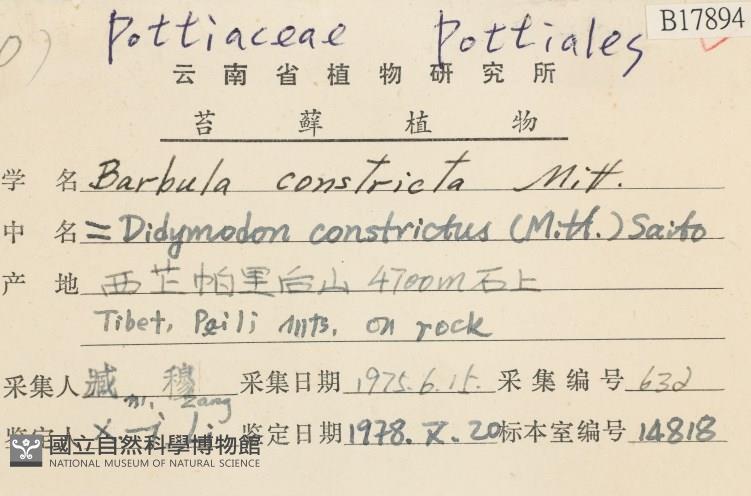 Pottiaceae Pottiales B17894
云南省植物研究所
苔藓植物
学名 Barbula constricta Mitt.
中名 = Didymodon constrictus (Mitt.) Saito
产地 西芷帕里后山 4700m 石上
Tibet, Paili mts. on rock
采集人 臧穆 采集日期 1975.6.15. 采集编号 632
m. Zang
鉴定人 X-j Li 鉴定日期 1978.X.20 标本室编号 14818
國立自然科學博物館
NATIONAL MUSEUM OF NATURAL SCIENCE